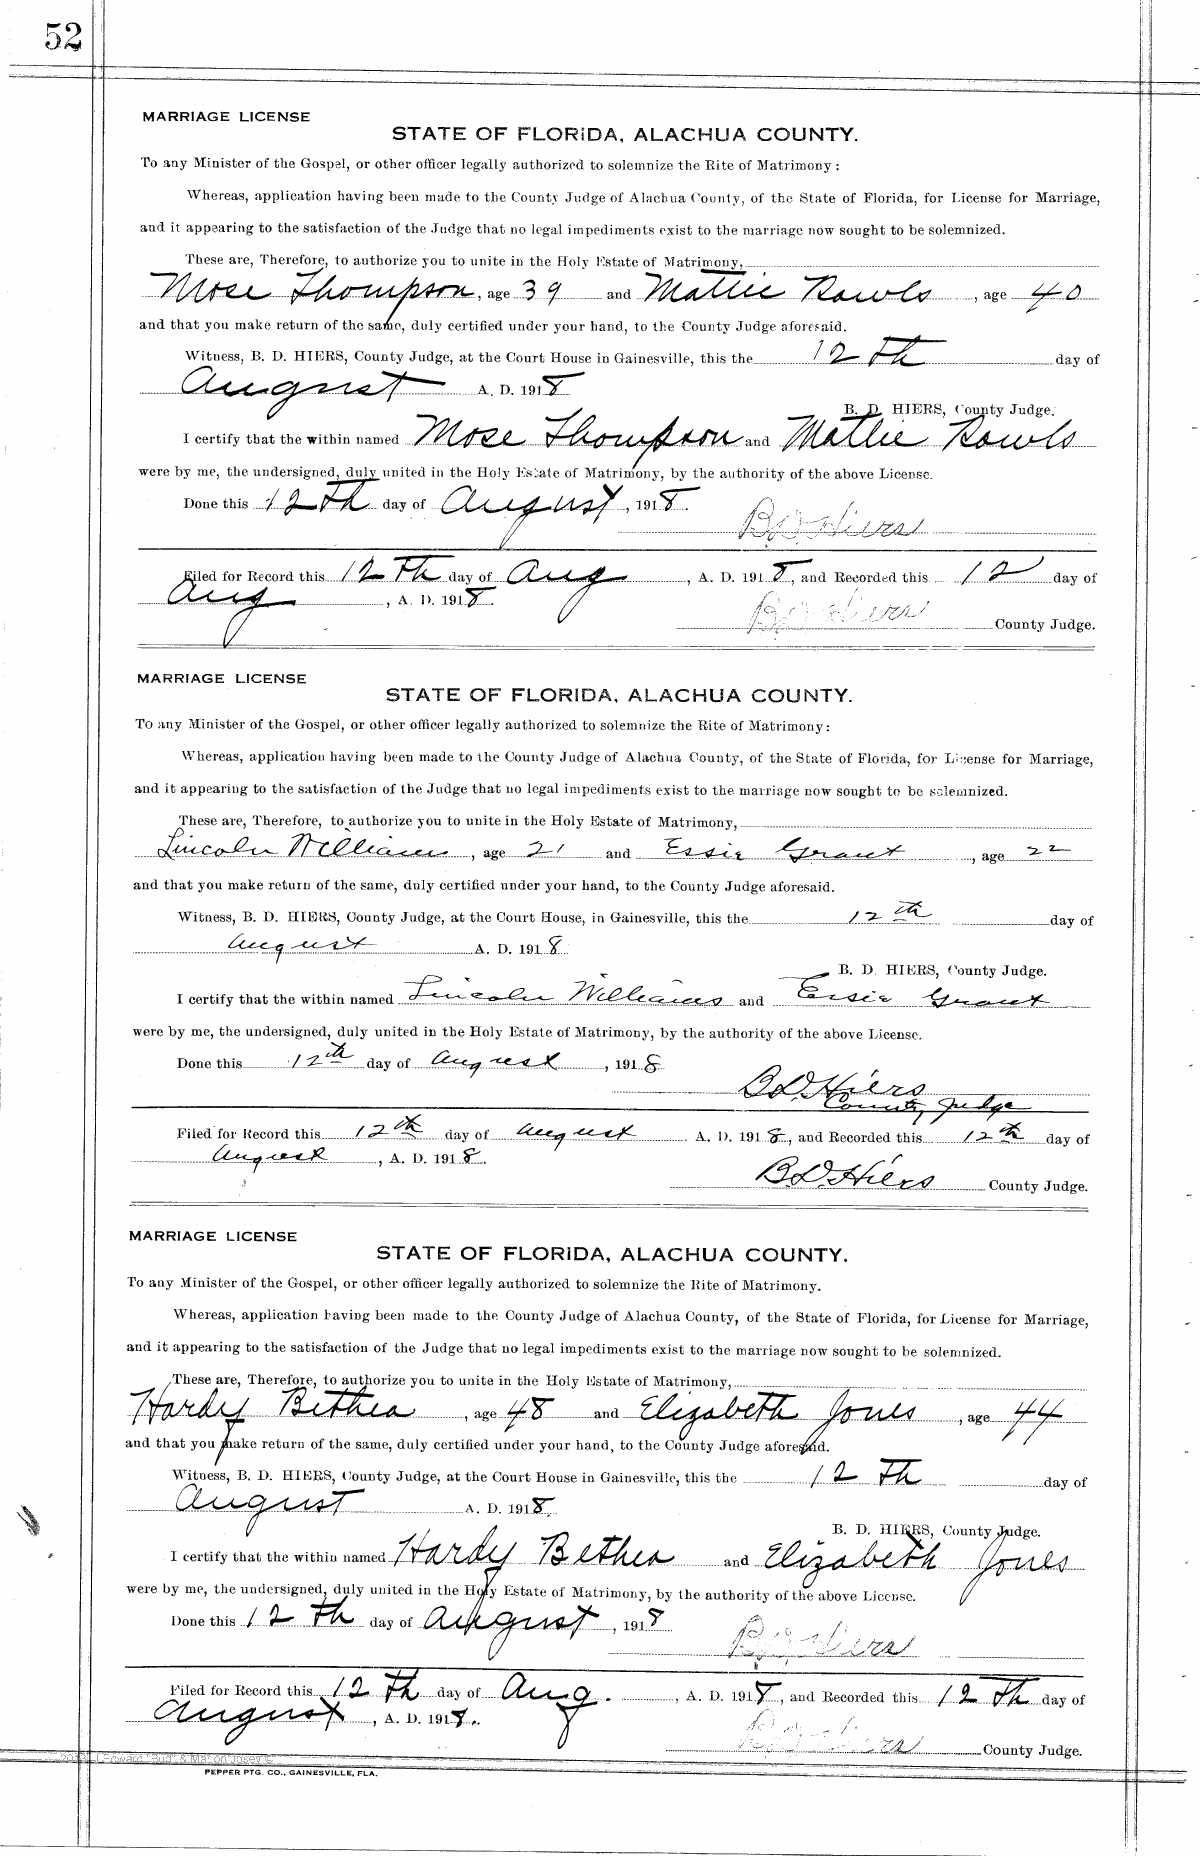 52
MARRIAGE LICENSE
STATE OF FLORIDA, ALACHUA COUNTY.
To any Minister of the Gospel, or other officer legally authorized to solemnize the Rite of Matrimony:
Whereas, application having been made to the County Judge of Alachua County, of the State of Florida, for License for Marriage,
and it appearing to the satisfaction of the Judge that no legal impediments exist to the marriage now sought to be solemnized.
These are, Therefore, to authorize you to unite in the Holy Estate of Matrimony,
Mose Thompson, age 39 and Mattie Rawls, age 40
and that you make return of the same, duly certified under your hand, to the County Judge aforesaid.
Witness, B. D. HIERS, County Judge, at the Court House in Gainesville, this the 12th day of
August A. D. 1918
B. D. HIERS, County Judge.
I certify that the within named Mose Thompson and Mattie Rawls
were by me, the undersigned, duly united in the Holy Estate of Matrimony, by the authority of the above License.
Done this 12th day of August, 1918.
B D Hiers
Filed for Record this 12th day of Aug, A. D. 1918, and Recorded this 12 day of
Aug, A. D. 1918.
B D Hiers County Judge.
MARRIAGE LICENSE
STATE OF FLORIDA, ALACHUA COUNTY.
To any Minister of the Gospel, or other officer legally authorized to solemnize the Rite of Matrimony:
Whereas, application having been made to the County Judge of Alachua County, of the State of Florida, for License for Marriage,
and it appearing to the satisfaction of the Judge that no legal impediments exist to the marriage now sought to be solemnized.
These are, Therefore, to authorize you to unite in the Holy Estate of Matrimony,
Lincoln Williams, age 21 and Essie Grant, age 22
and that you make return of the same, duly certified under your hand, to the County Judge aforesaid.
Witness, B. D. HIERS, County Judge, at the Court House, in Gainesville, this the 12th day of
August A. D. 1918
B. D. HIERS, County Judge.
I certify that the within named Lincoln Williams and Essie Grant
were by me, the undersigned, duly united in the Holy Estate of Matrimony, by the authority of the above License.
Done this 12th day of August, 1918
B D Hiers
County Judge
Filed for Record this 12th day of August A. D. 1918, and Recorded this 12th day of
August, A. D. 1918.
B D Hiers County Judge.
MARRIAGE LICENSE
STATE OF FLORIDA, ALACHUA COUNTY.
To any Minister of the Gospel, or other officer legally authorized to solemnize the Rite of Matrimony.
Whereas, application having been made to the County Judge of Alachua County, of the State of Florida, for License for Marriage,
and it appearing to the satisfaction of the Judge that no legal impediments exist to the marriage now sought to be solemnized.
These are, Therefore, to authorize you to unite in the Holy Estate of Matrimony,
Hardy Bethea, age 48 and Elizabeth Jones, age 44
and that you make return of the same, duly certified under your hand, to the County Judge aforesaid.
Witness, B. D. HIERS, County Judge, at the Court House in Gainesville, this the 12th day of
August A. D. 1918.
B. D. HIERS, County Judge.
I certify that the within named Hardy Bethea and Elizabeth Jones
were by me, the undersigned, duly united in the Holy Estate of Matrimony, by the authority of the above License.
Done this 12th day of August, 1918
B D Hiers
Filed for Record this 12th day of Aug., A. D. 1918, and Recorded this 12th day of
August, A. D. 1918.
B D Hiers County Judge.
PEPPER PTG. CO., GAINESVILLE, FLA.